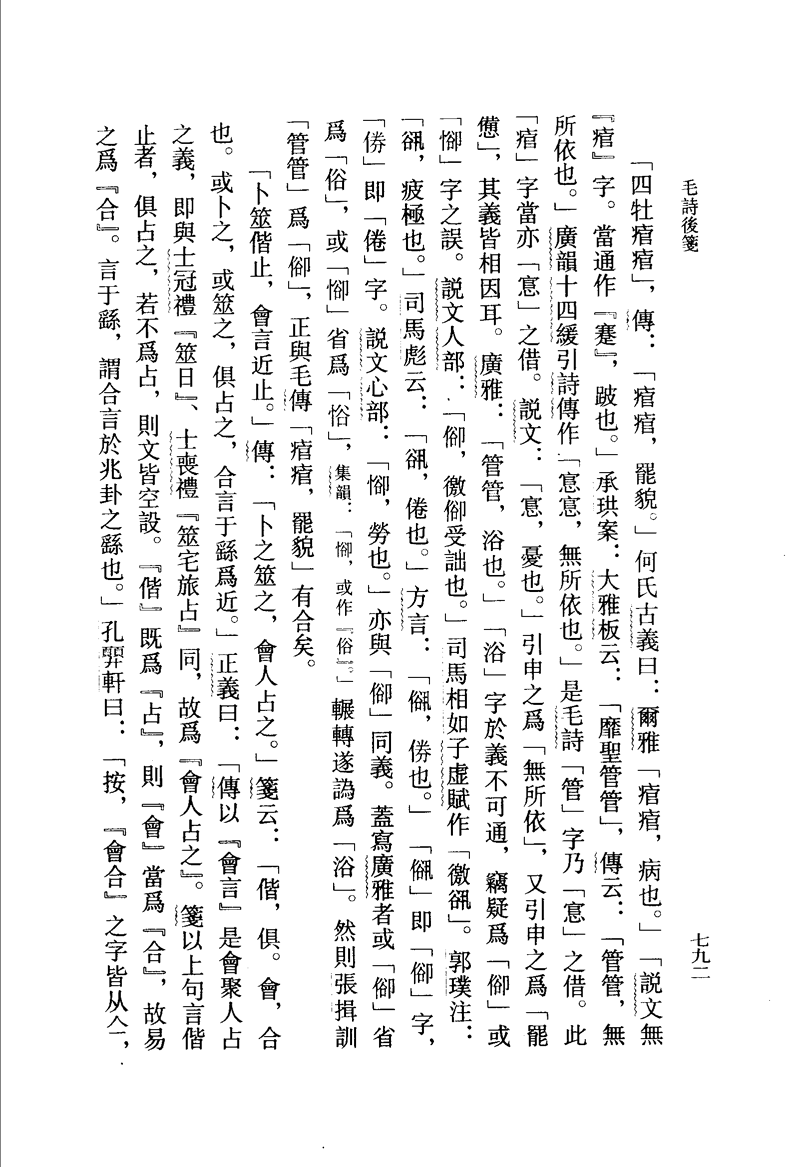 毛詩後箋
七九二
「四牡痯痯」，傳：「痯痯，罷貌。」何氏古義曰：爾雅「痯痯，病也。」「說文無
『痯』字。當通作『蹇』，跛也。」承珙案：大雅板云：「靡聖管管」，傳云：「管管，無
所依也。」廣韻十四緩引詩傳作「悹悹，無所依也。」是毛詩「管」字乃「悹」之借。此
「痯」字當亦「悹」之借。說文：「悹，憂也。」引申之爲「無所依」，又引申之爲「罷
憊」，其義皆相因耳。廣雅：「管管，浴也。」「浴」字於義不可通，竊疑爲「㑢」或
「㥛」字之誤。說文人部：「㑢，徼㑢受詘也。」司馬相如子虛賦作「徼䣤」。郭璞注：
「䣤，疲極也。」司馬彪云：「䣤，倦也。」方言：「㑢，㑂也。」「㑢」即「㑢」字，
「㑂」即「倦」字。說文心部：「㥛，勞也。」亦與「㑢」同義。蓋寫廣雅者或「㑢」省
爲「俗」，或「㥛」省爲「㤤」，集韻：「㥛，或作『㤤』。」輾轉遂譌爲「浴」。然則張揖訓
「管管」爲「㑢」，正與毛傳「痯痯，罷貌」有合矣。
「卜筮偕止，會言近止。」傳：「卜之筮之，會人占之。」箋云：「偕，俱。會，合
也。或卜之，或筮之，俱占之，合言于繇爲近。」正義曰：「傳以『會言』是會聚人占
之義，即與士冠禮『筮日』、士喪禮『筮宅旅占』同，故爲『會人占之』。箋以上句言偕
止者，俱占之，若不爲占，則文皆空設。『偕』既爲『占』，則『會』當爲『合』，故易
之爲『合』。言于繇，謂合言於兆卦之繇也。」孔巽軒曰：「按，『會合』之字皆从亼，